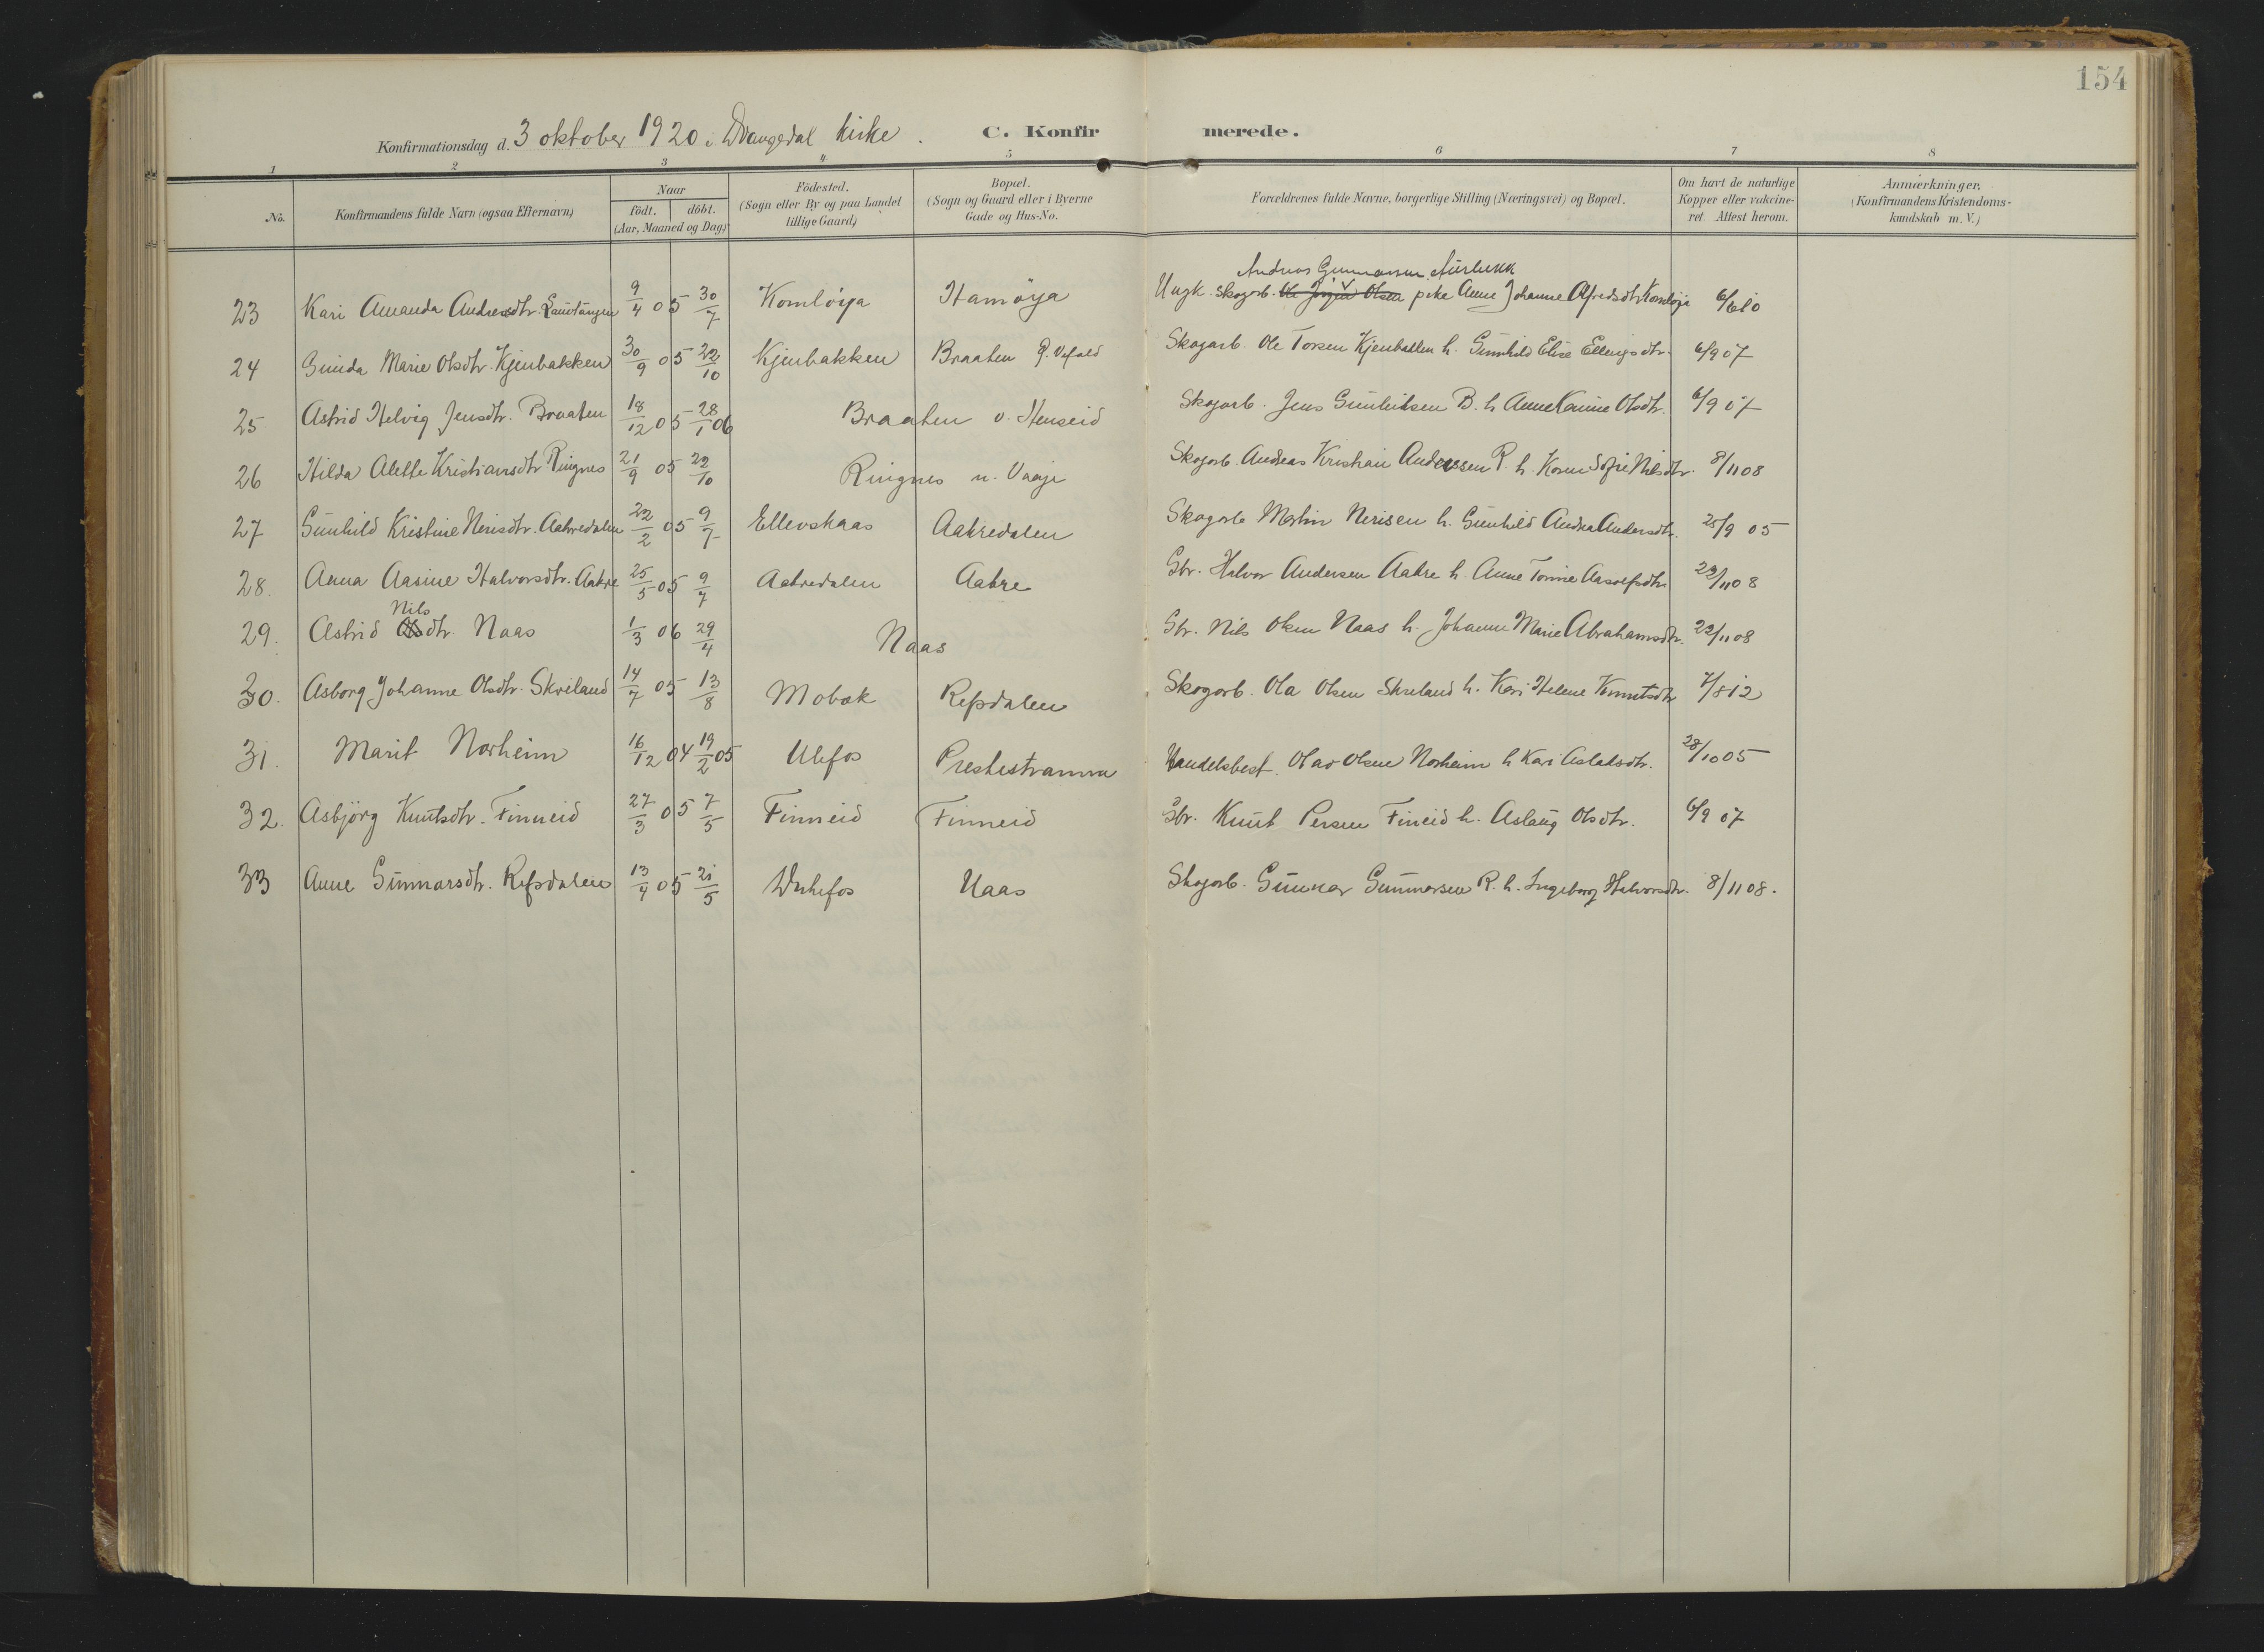 154
Konfirmationsdag d. 3 oktober 1920 i Drangedal kirke. C. Konfirmerede.
1 2 3 4 5 6 7 8
No. Konfirmandens fulde Navn (ogsaa Efternavn) Naar født. døbt. (Aar, Maaned og Dag.) Födested. (Sogn eller By og paa Landet tillige Gaard) Bopæl. (Sogn og Gaard eller i Byerne Gade og Hus-No. Forældrenes fulde Navne, borgerlige Stilling (Næringsvei) og Bopæl. Om havt de naturlige Kopper eller vakcineret. Attest herom. Anmærkninger. (Konfirmandens Kristendomskundskab m. V.)
Andreas Gunnarsen
23 Kari Amanda Andreasdtr. 9/4 05 30/7 Komløya Hamøya Ungk. skogarb. Ole Jørgen Olsen pike Anne Johanne Alfredsdtr. Komløya 6/6 10
24 Gunda Marie Olsdtr. Kjenbakken 30/9 05 22/10 Kjenbakken Braaten Skogarb. Ole Torsen Kjenbakken h. Gunhild Elise Ellingsdtr. 6/9 07
25 Astrid Helvig Jensdtr. Braaten 18/12 05 28/1 06 Braaten v. Henseid Skogarb. Jens Gunleiksen B. h. Anne Karine Olsdtr. 6/9 07
26 Hilda Alette Kristiansdtr. Ringnes 21/9 05 22/10 Ringnes u. Vaaje Skogarb. Andreas Kristian Anderssen R. h. Karen Sofie Nilsdtr. 8/11 08
27 Gunhild Kristine Nerisdtr. Aakredalen 22/2 05 9/7 Ellevskaas Aakredalen Skogarb. Martin Nerisen h. Gunhild Andrea Andersdtr. 25/9 05
28. Anna Aasine Halvorsdtr. Aakre 25/5 05 9/7 Aakredalen Aakre Gbr. Halvor Andersen Aakre h. Anne Tomine Aasolfsdtr. 22/11 08
Nils
29. Astrid Olsdtr. Naas 1/3 06 29/4 Naas Gbr. Nils Olsen Naas h. Johanne Marie Abrahamsdtr. 22/11 08
30. Asborg Johanne Olsdtr. Skreland 14/7 05 13/8 Mobæk Refsdalen Skogarb. Ola Olsen Skreland h. Kari Helene Knutsdtr. 7/8 12
31. Marit Norheim 16/12 04 19/2 05 Ulefos Prestestranna Handelsbest. Olav Olsen Norheim h. Kari Aslaksdtr. 28/10 05
32. Asbjörg Knutsdtr. Finneid 27/3 05 7/5 Finneid Finneid Gbr. Knut Persen Fineid h. Aslaug Olsdtr. 6/9 07
33 Anne Gunnarsdtr. Refsdalen 13/4 05 21/5 Naas Skogarb. Gunnar Gunnarsen R. h. Ingeborg Halvorsdtr. 8/11 08.